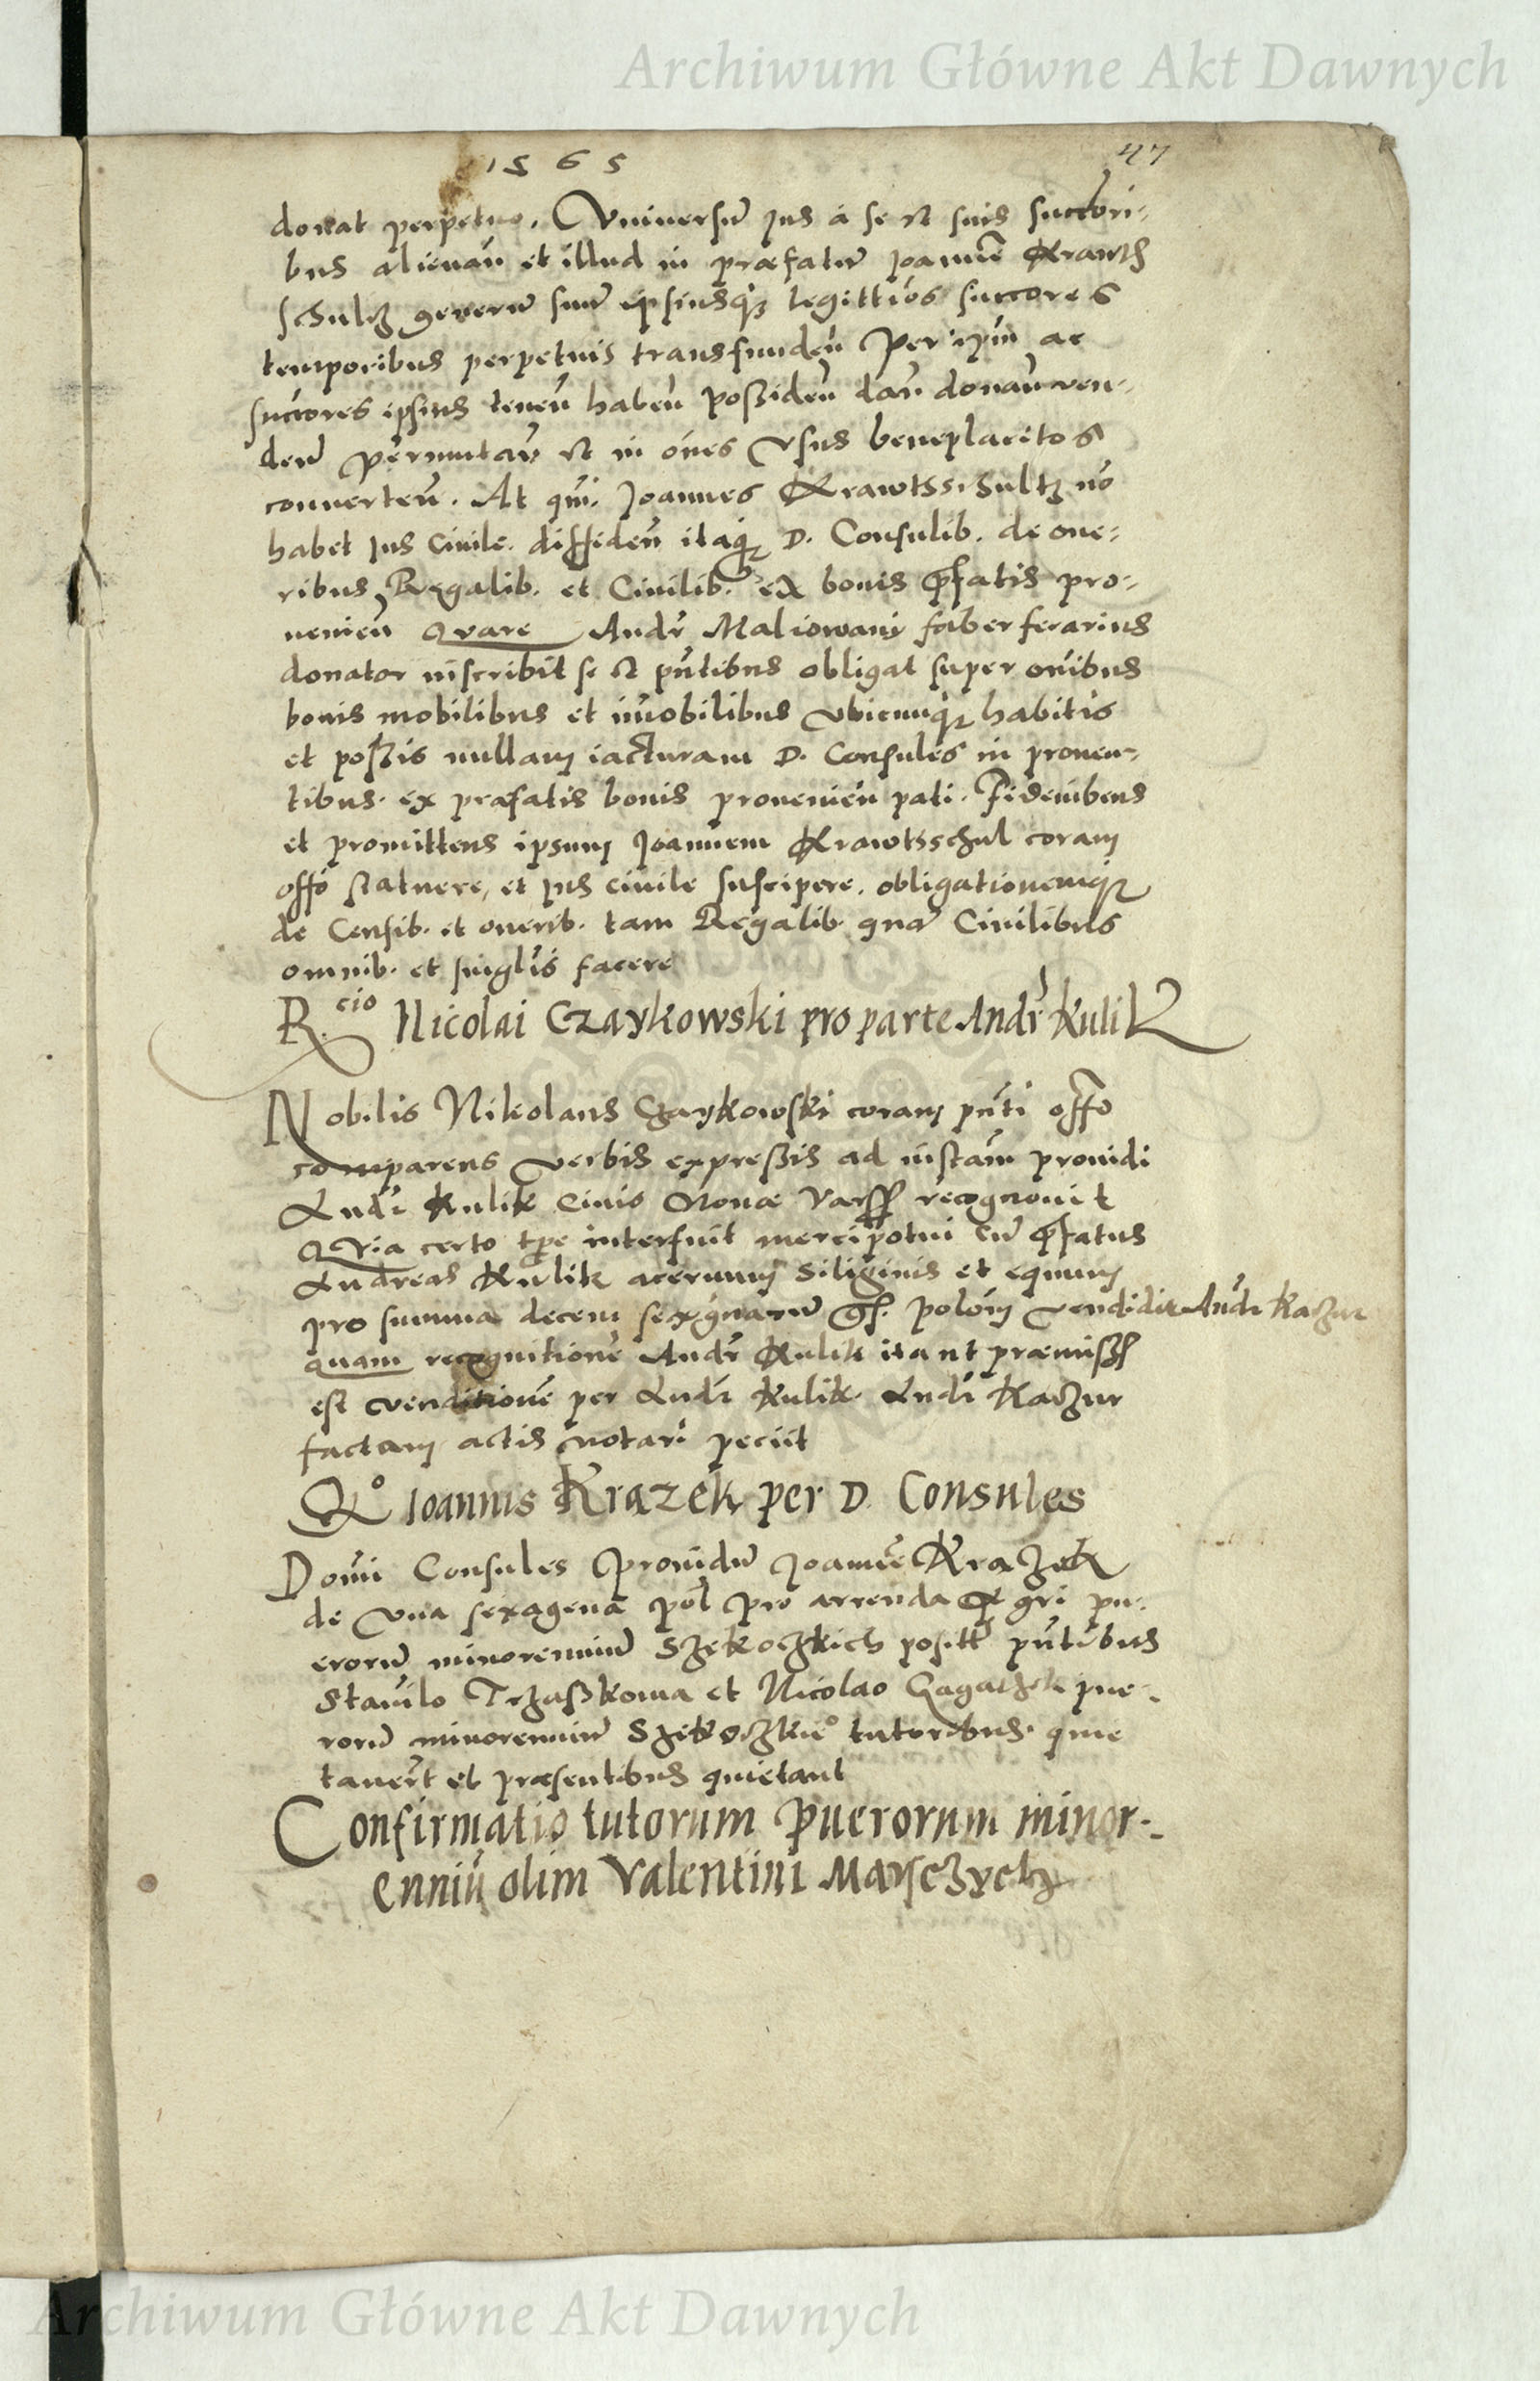 Archiwum Główne Akt Dawnych
1565 47
donat perpetuo. Vniversũ jus à se et suis succori-
bus alienań et illud in præfatũ Joannẽ Krawtz
schultz generũ suũ ipsiusq; legittĩos succores
temporibus perpetuis transfundeń Per ipm̃ ac
succores ipsius teneń habeń possideń dań donań ven-
deń permutań et in oẽs vsus beneplacitos
converteń. At qm̃. Joannes Krawtsschultz nõ
habet jus civile. diffideń itaq; D. Consulib. de one-
ribus Regalib. et Civilib. ex bonis p̃fatis pro-
venień Qvare Andr̃ Maliowany faber ferarius
donator inscribit se et pñtibus obligat super om̃ibus
bonis mobilibus et im̃obilibus vbicunq; habitis
et possis nullam iacturam D. Consules in proven-
tibus. ex præfatis bonis provenień pati. Fideiubens
et promittens ipsum Joannem Krawtsschul coram
offõ statuere, et jus civile suscipere. obligationemq;
de Censib. et onerib. tam Regalib. quã Civilibus
omnib. et singulis facere
R.cio Nicolai Czaykowski pro parte Andr̃ Kulik
Nobilis Nikolaus Czaykowski coram pñti offõ
comparens verbis expressis ad instam̃ providi
Andr̃ Kulik Civis Novæ Varss recognovit
Qvia certo tp̃e interfuit mercipotui cũ p̃fatus
Andreas Kulik acervum siliginis et equum
pro summa decem sexagnarũ gs. poloni vendidit Andr̃ Kaczur
quam recognitionẽ Andr̃ Kulik ita ut præmiss
est venditionẽ per Andr̃ Kulik Andr̃ Kaczur
factam actis notari peciit
Q.o Joannis Krazek per D. Consules
Dom̃i Consules providũ Joannẽ Krazek
de vna sexagena pol pro arrenda agri pu-
erorũ minorenniũ Szekoczkich pñtibus
Stanilo Trzasskoma et Nicolao Gagatzek pue-
rorũ minorenniũ tutoribus. quie
taver̃t et præsentibus quietant
Confirmatio tutorum puerorum minor-
enniũ olim Valentini Marsczych
Archiwum Główne Akt Dawnych